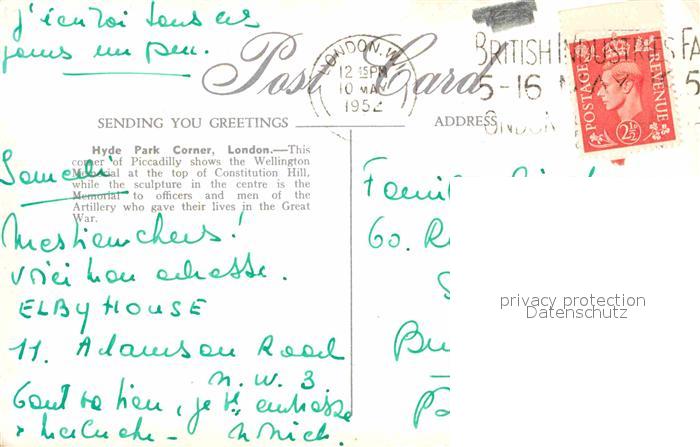 j'écris tous les
jours un peu.
Post Card
LONDON. W.
12 15 PM
10 MAY
1952
BRITISH INDUSTRIES FA
5-16 MAY 5
LONDON
POSTAGE REVENUE
2½
SENDING YOU GREETINGS
ADDRESS
Hyde Park Corner, London.—This
corner of Piccadilly shows the Wellington
Memorial at the top of Constitution Hill,
while the sculpture in the centre is the
Memorial to officers and men of the
Artillery who gave their lives in the Great
War.
Samedi
Mes bien chers!
voici mon adresse.
ELBY HOUSE
11. Adamson Road
N.W. 3
tout va bien, je vs embrasse
60. R
Bu
privacy protection
Datenschutz